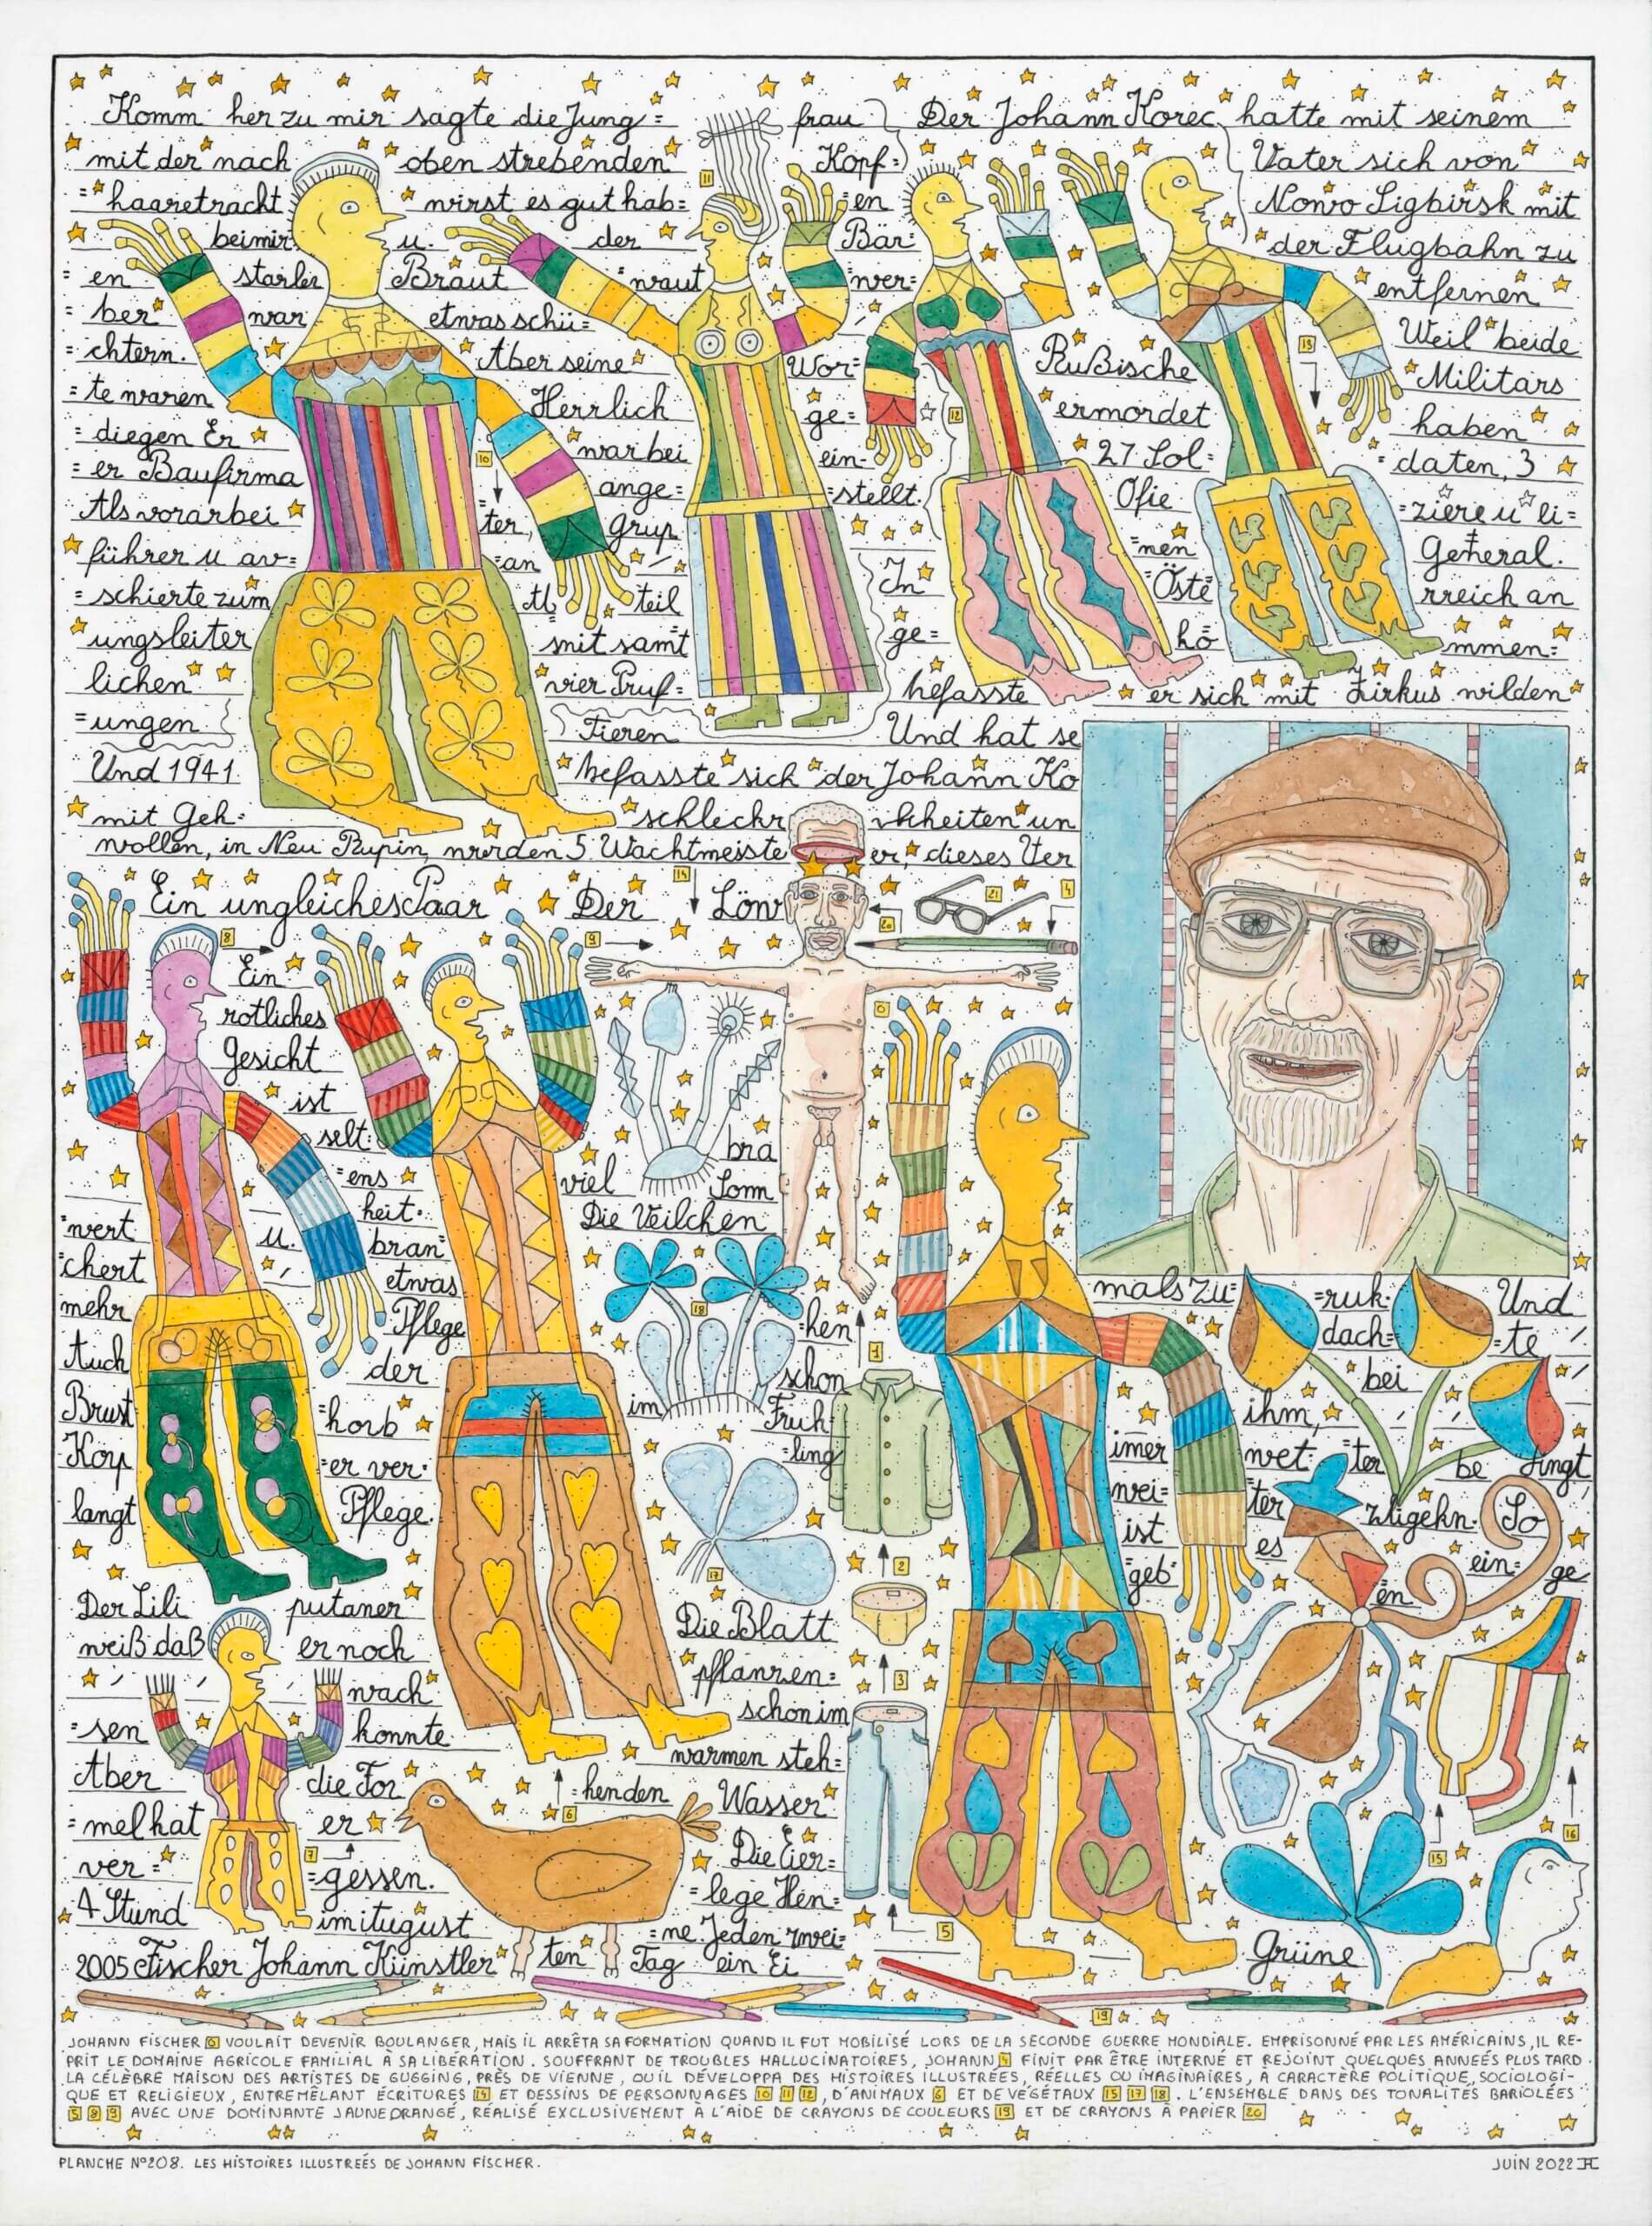 Komm her zu mir sagte die Jung= frau Der Johann Korec hatte mit seinem
mit der nach oben strebenden Kopf= Vater sich von
=haaretracht wirst es gut hab= =en Nowo Sigbirsk mit
bei mir u. der Bär= der Flugbahn zu
=en starke Braut =wraut wer= entfernen
=ber war etwas schü= Weil beide
=chtern. Aber seine Wor= Rußische Militärs
=te waren Herrlich ge= ermordet haben
=diegen Er war bei ein= 27 Sol= =daten, 3
=er Baufirma ange= =stellt. Ofie =ziere u ei=
Als vorarbei =ter, grup =nen General.
=führer u av= =an In Öste =rreich an
=schierte zum Abteil ge= kö =mmen=
=ungsleiter mit samt
lichen vier Pruf= befasste er sich mit Zirkus wilden
=ungen Tieren Und hat se
Und 1941 befasste sich der Johann Ko
mit Geh= schlechr ichkeiten un
wollen, in Neu Rupin, wurden 5 Wachtmeiste er, dieses Ver
Ein ungleiches Paar Der Löw
8 9 14 20 21 4
Ein
rötliches
Gesicht
ist
selt=
=ens
=wert u. =heit.
=chert bran
mehr etwas
Pflege
Auch der
Brust =horb
Korp =er ver=
langt Pflege.
bra
viel Somm
Die Veilchen
=hen
schon
im Früh
=ling
Der Lili putaner
weiß daß er noch
wach
=sen konnte.
Aber die For
=mel hat er
ver= =gessen.
4 Stund im August
2005 Fischer Johann Künstler
Die Blatt
pflanzen=
schon im
warmen steh=
=henden Wasser
Die Eier=
=lege Hen=
=ne Jeden zwei=
=ten Tag ein Ei
mals zu= =ruk. Und
dach= =te
bei
ihm,
imer wet= =ter be dingt
wei= =ter zligehn. So
ist es ein= ge
geb en
Grüne
JOHANN FISCHER 0 VOULAIT DEVENIR BOULANGER, MAIS IL ARRÊTA SA FORMATION QUAND IL FUT MOBILISÉ LORS DE LA SECONDE GUERRE MONDIALE. EMPRISONNÉ PAR LES AMÉRICAINS, IL RE-
PRIT LE DOMAINE AGRICOLE FAMILIAL À SA LIBÉRATION. SOUFFRANT DE TROUBLES HALLUCINATOIRES, JOHANN 4 FINIT PAR ÊTRE INTERNÉ ET REJOINT QUELQUES ANNEÉS PLUS TARD
LA CÉLÈBRE MAISON DES ARTISTES DE GUGGING, PRÈS DE VIENNE, OU IL DÉVELOPPA DES HISTOIRES ILLUSTRÉES, RÉELLES OU IMAGINAIRES, À CARACTÈRE POLITIQUE, SOCIOLOGI-
QUE ET RELIGIEUX, ENTREMÊLANT ÉCRITURES 14 ET DESSINS DE PERSONNAGES 10 11 12, D'ANIMAUX 6 ET DE VÉGÉTAUX 15 17 18. L'ENSEMBLE DANS DES TONALITÉS BARIOLÉES
5 8 9 AVEC UNE DOMINANTE JAUNE ORANGÉ, RÉALISÉ EXCLUSIVEMENT À L'AIDE DE CRAYONS DE COULEURS 19 ET DE CRAYONS À PAPIER 20
PLANCHE N°208. LES HISTOIRES ILLUSTREÉS DE JOHANN FISCHER.
JUIN 2022